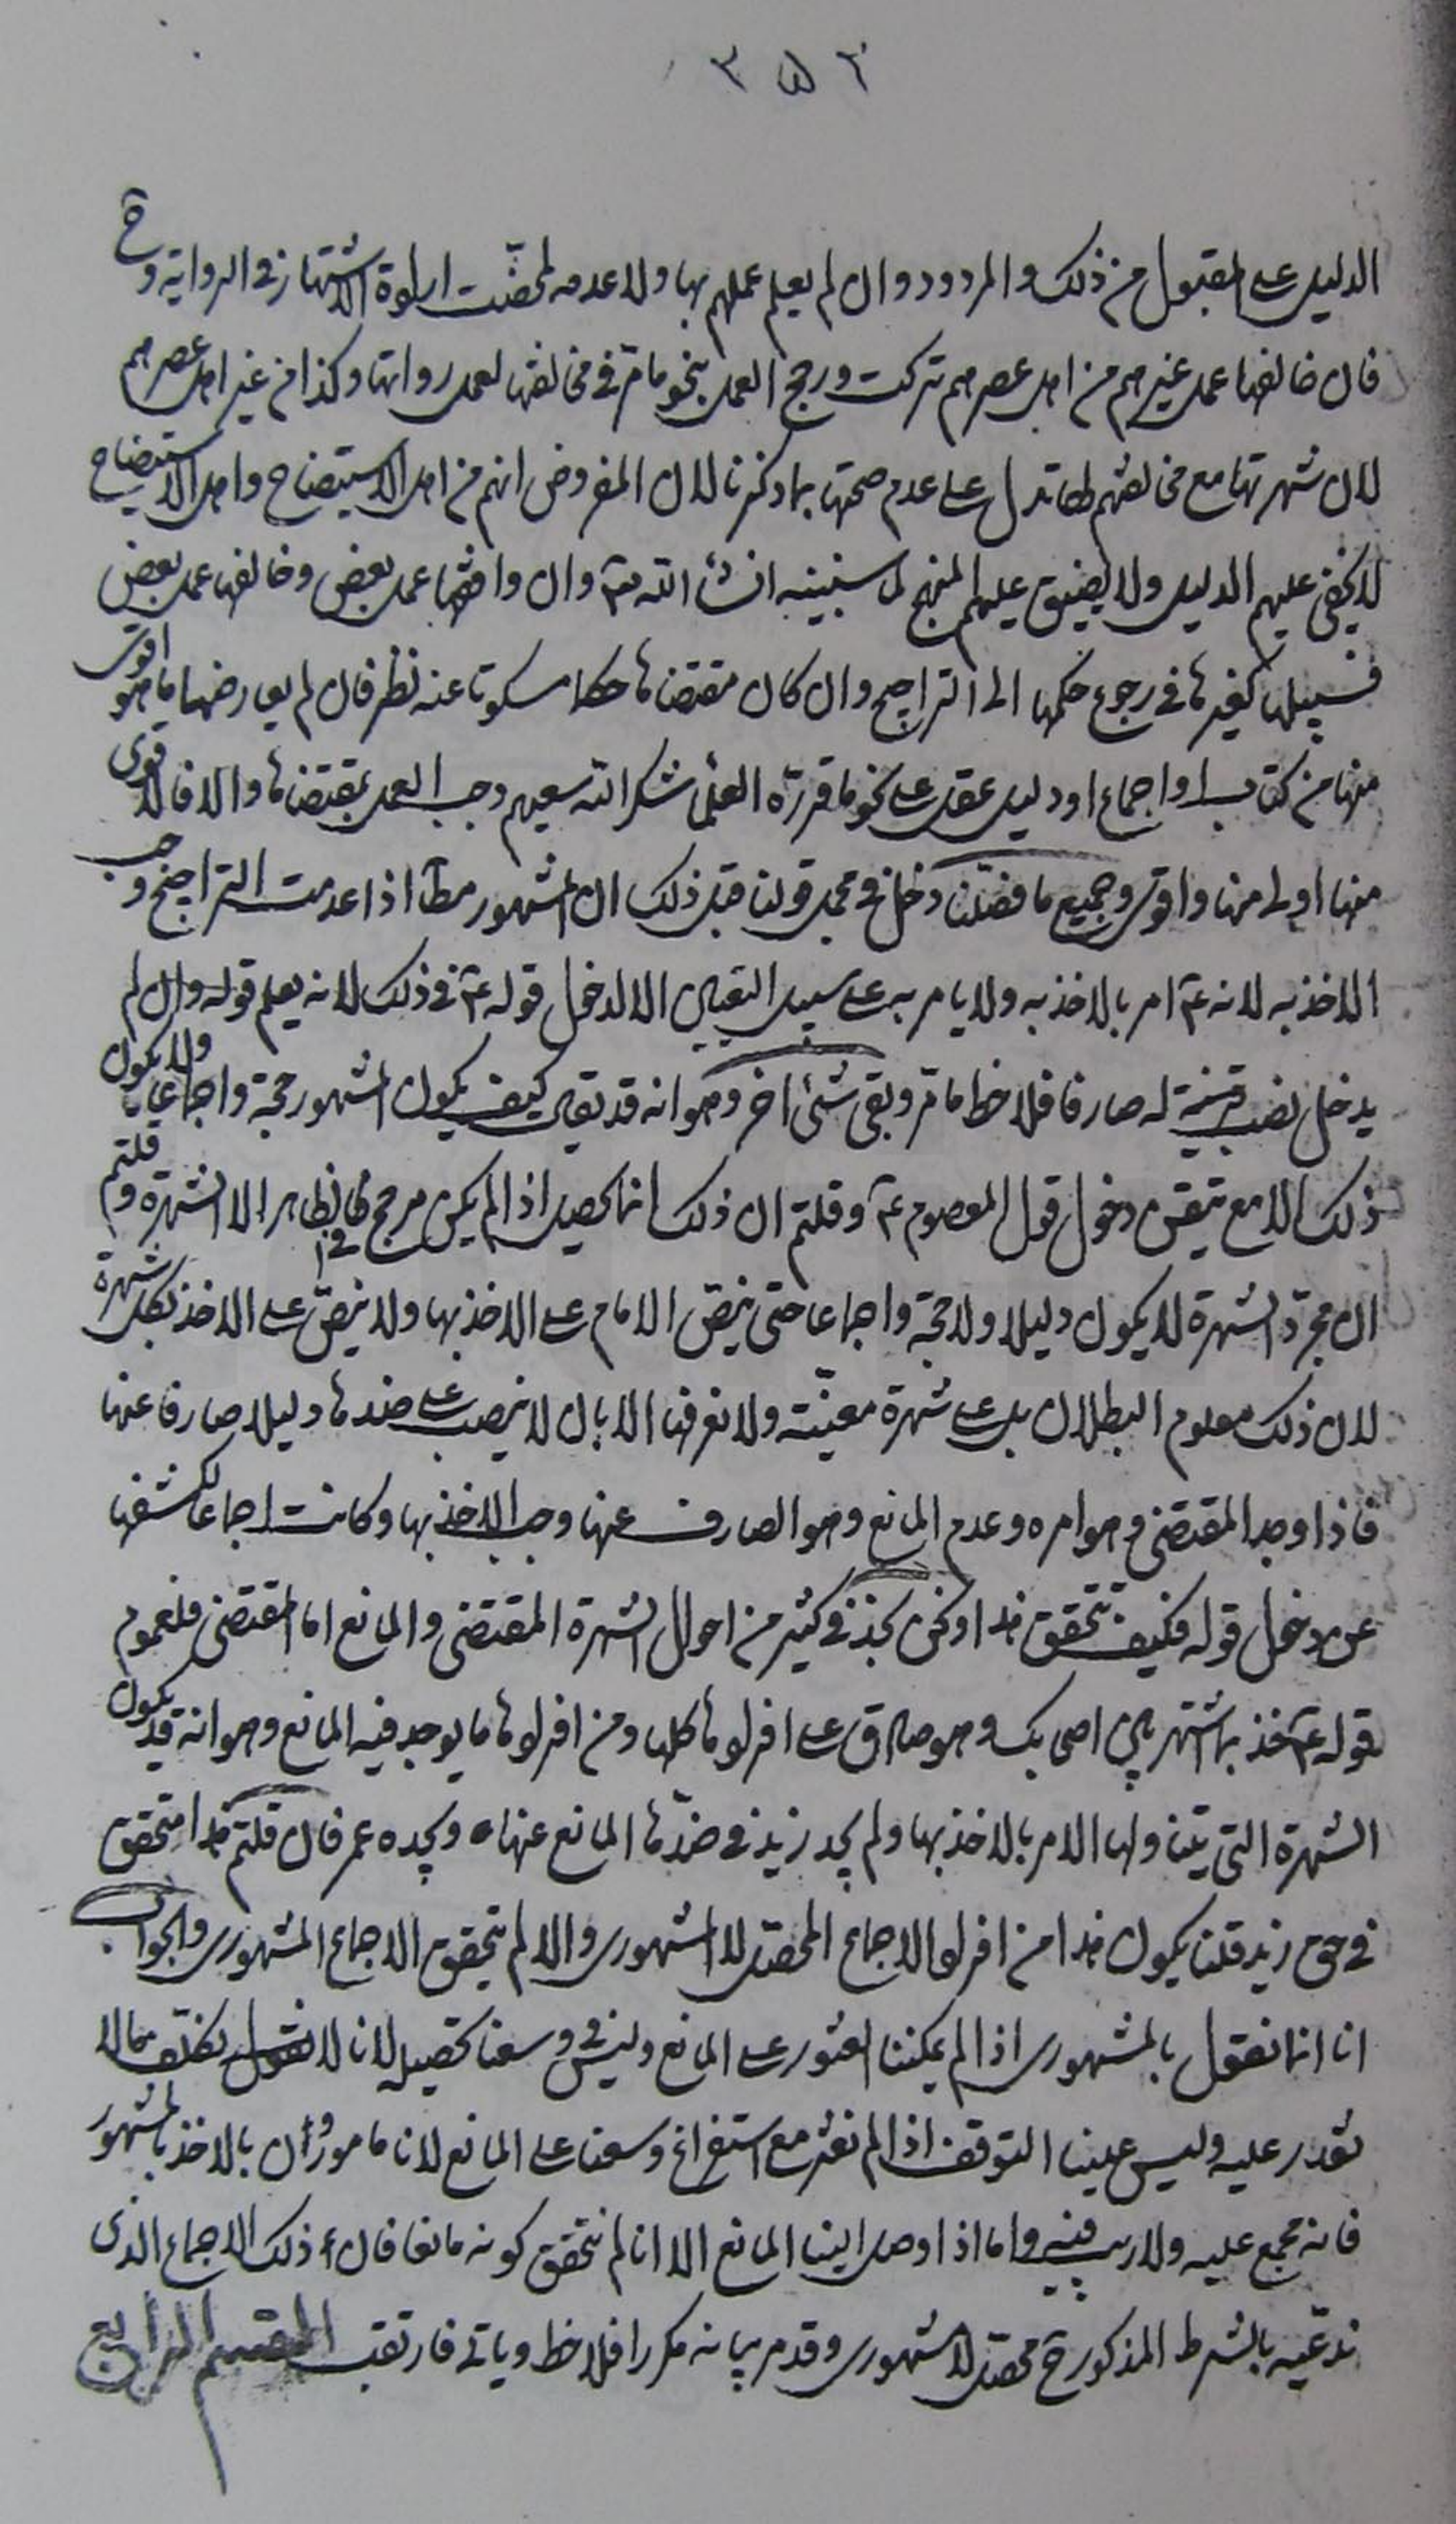 ٣٥٢
الدليل على المقبول من ذلك والمردود وان لم يعلم عملهم بها ولا عدمه لمحضت ارادة الاشتهار في الرواية وح
فان خالفها عمل غيرهم من اهل عصرهم تركت ورجح العمل بنحو ما مر في مخالفها لعمل رواتها وكذا من غير اهل عصرهم
لان شهرتها مع مخالفتهم لها تدل على عدم صحتها بما ذكرنا لان المفروض انهم من اهل الاستيضاح واهل الاستيضاح
لا يخفى عليهم الدليل ولا يضيق عليهم المنهج لما سنبينه انشاء الله تع وان وافقها عمل بعض وخالفها عمل بعض
فسبيلها كغيرها في رجوع حكمها الى التراجيح وان كان مقتضاها حكما مسكوتا عنه نظر فان لم يعارضها ما هو اقوى
منها من كتاب او اجماع او دليل عقل على نحو ما قرره العلماء شكر الله سعيهم وجب العمل بمقتضاها والا فالاقوى
منها اولى منها واقوى وجميع ما فصلنا دخل في مجمل قولنا قبل ذلك ان المشهور مطلقا اذا عدمت التراجيح وجب
الاخذ به لانه ع امر بالاخذ به ولا يامر به على سبيل التعيين الا لدخول قوله ع في ذلك لانه يعلم قوله وان لم
يدخل نصب قرينة له صارفا فلاحظ ما مر وبقى شئ اخر وهو انه قد يقال كيف يكون المشهور حجة واجماعا ولا يكون
ذلك الا مع تيقن دخول قول المعصوم ع وقلتم ان ذلك انما يحصل اذا لم يكن مرجح في الظاهر الا الشهرة وقلتم
ان مجرد الشهرة لا يكون دليلا ولا حجة واجماعا حتى ينص الامام على الاخذ بها ولا ينص على الاخذ بكل شهرة
لان ذلك معلوم البطلان بل على شهرة معينة ولا نعرفها الا بان لا ينصب على ضدها دليلا صارفا عنها
فاذا وجد المقتضى وهو امره وعدم المانع وهو الصارف عنها وجب الاخذ بها وكانت اجماعا لكشفها
عن دخول قوله فكيف تتحقق هذا ونحن نجد في كثير من احوال الشهرة المقتضى والمانع اما المقتضى فلعموم
قوله ع خذ بما اشتهر بين اصحابك وهو صادق على افرادها كلها ومن افرادها ما يوجد فيه المانع وهو انه قد يكون
الشهرة التي يتناولها الامر بالاخذ بها ولم يجد زيد في ضدها المانع عنها ويجده عمر فان قلتم هذا متحقق
في حق زيد قلنا يكون هذا من افراد الاجماع المحصل لا المشهوري والا لم يتحقق الاجماع المشهوري والجواب
انا انما نقول بالمشهوري اذا لم يمكننا العثور على المانع وليس في وسعنا تحصيله لانا لا نقول بتكلف ما لا
نقدر عليه وليس علينا التوقف اذا لم نعثر مع استفراغ وسعنا على المانع لانا مامورون بالاخذ بالمشهور
فانه مجمع عليه ولا ريب فيه واما اذا وصل الينا المانع الا انا لم نتحقق كونه مانعا فان ذلك الاجماع الذى
ندعيه بالشرط المذكور ح محصل لا مشهورى وقد مر بيانه مكررا فلاحظ وياتي فارتقب القسم الرابع